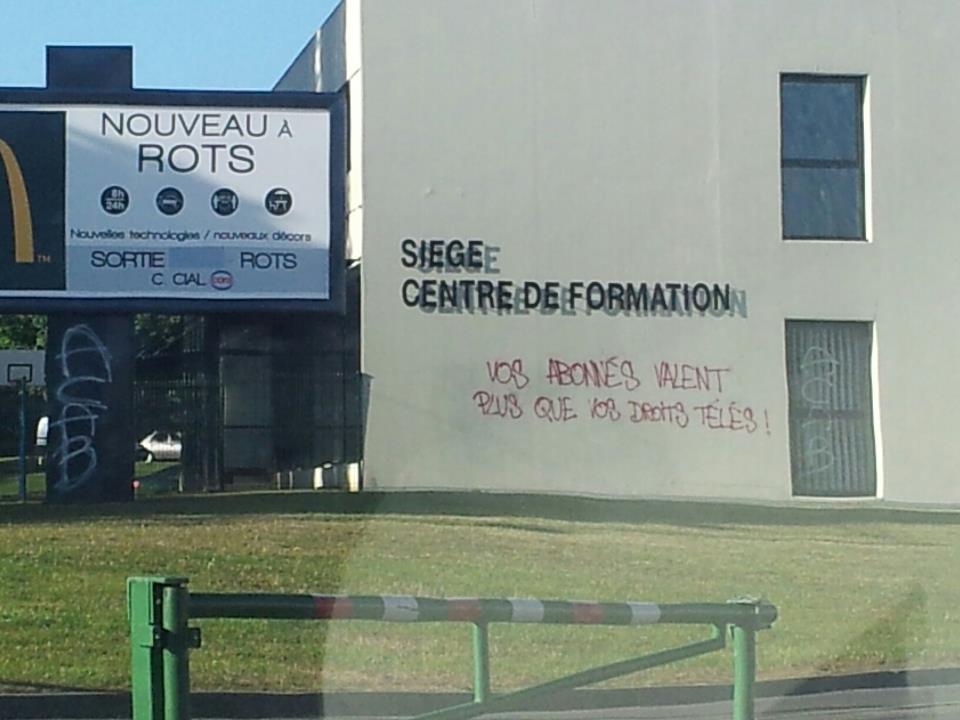 NOUVEAU À
ROTS
6h
24h
Nouvelles technologies / nouveaux décors
SORTIE ROTS
C. CIAL cora
TM
SIEGE
CENTRE DE FORMATION
VOS ABONNÉS VALENT
PLUS QUE VOS DROITS TÉLÉS !